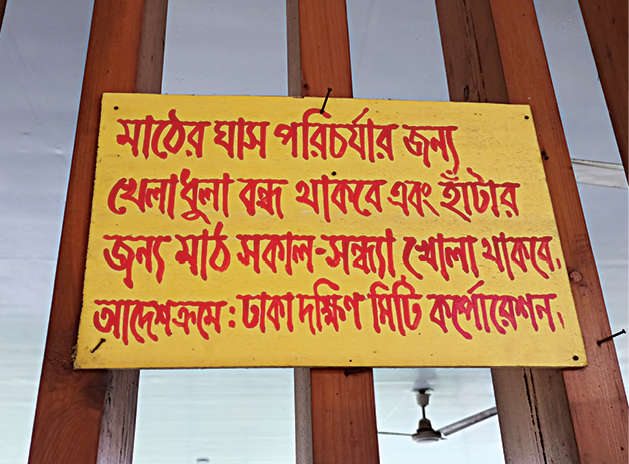 মাঠের ঘাস পরিচর্যার জন্য
খেলাধুলা বন্ধ থাকবে এবং হাঁটার
জন্য মাঠ সকাল-সন্ধ্যা খোলা থাকবে.
আদেশক্রমে: ঢাকা দক্ষিণ সিটি কর্পোরেশন.